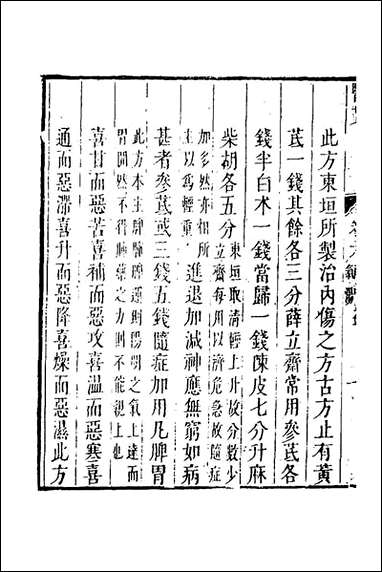 此方東垣所製治內傷之方古方止有黃
芪一錢其餘各三分薛立齋常用參芪各
錢半白朮一錢當歸一錢陳皮七分升麻
柴胡各五分東垣取淸輕上升故分數少
立齋每用以濟危急故隨症
加多然亦相所
主以爲輕重進退加減神應無窮如病
甚者參芪或三錢五錢隨症加用凡脾胃
此方本主脾
陽明之氣上達而
胃開然不得藥之力則不能親上也
喜甘而惡苦喜補而惡攻喜溫而惡寒喜
通而惡滯喜升而惡降喜燥而惡濕此方